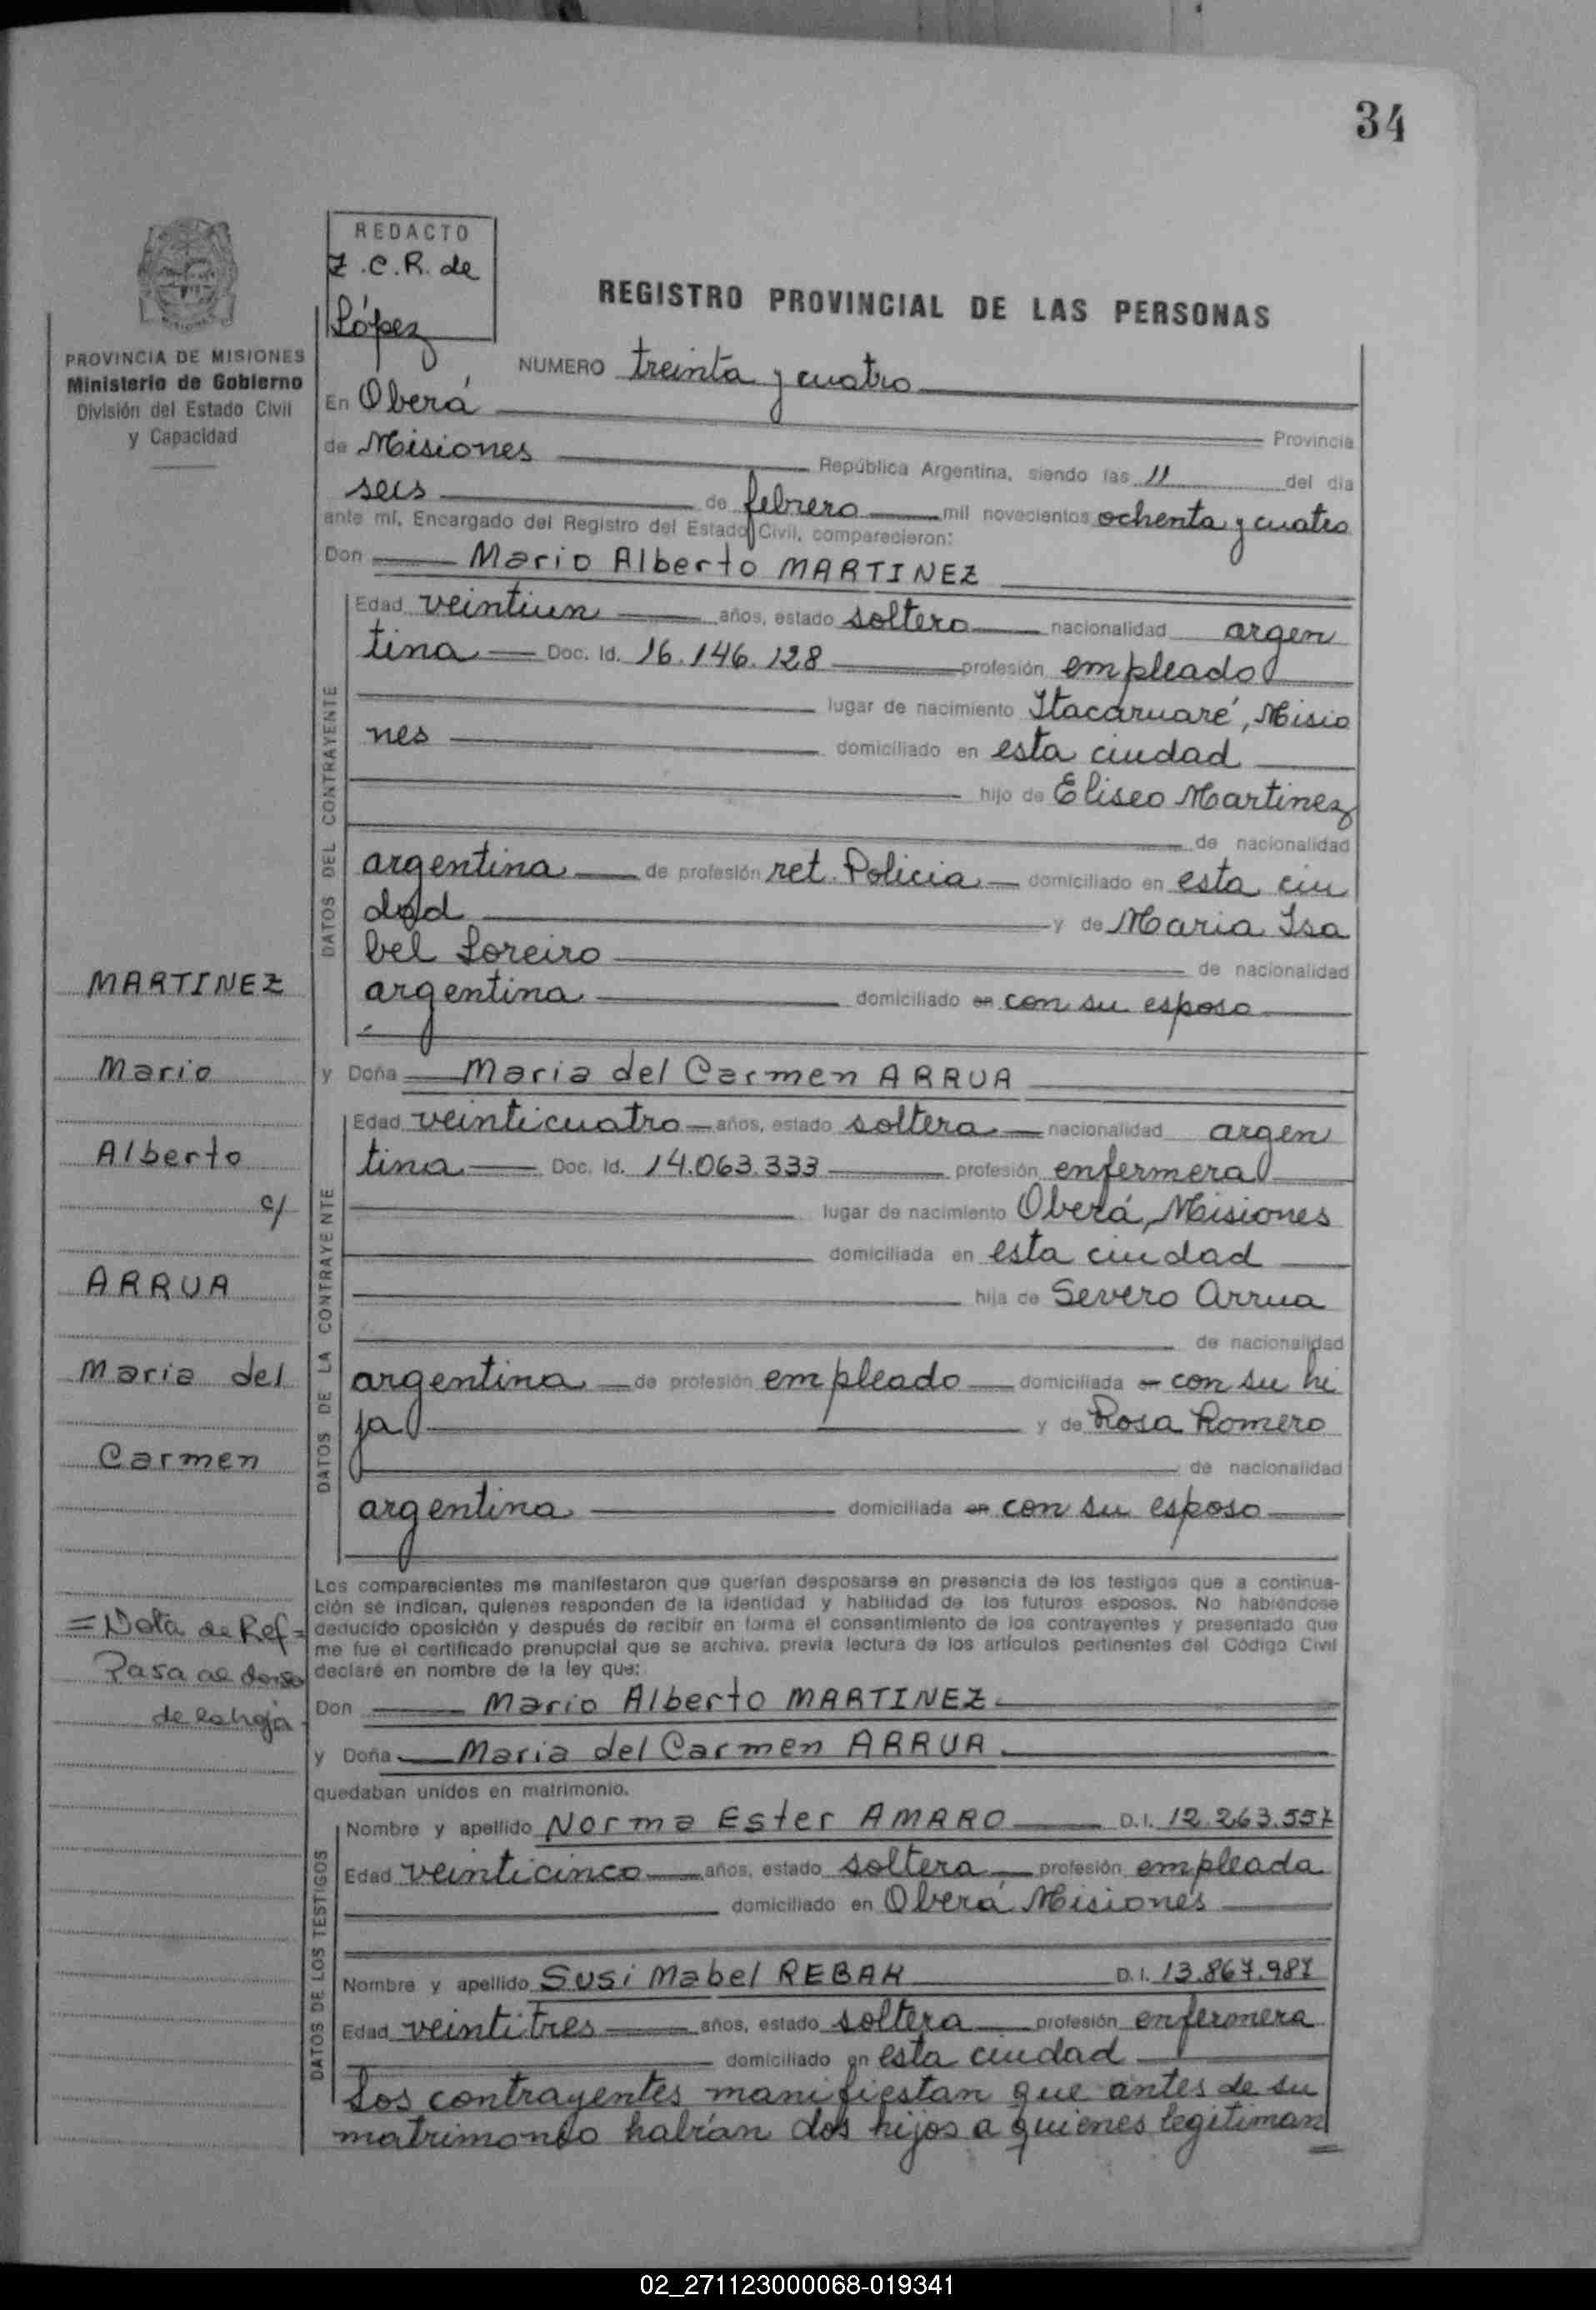 34
REDACTO
Z.C.R. de
López
REGISTRO PROVINCIAL DE LAS PERSONAS
PROVINCIA DE MISIONES
Ministerio de Gobierno
División del Estado Civil
y Capacidad
NUMERO treinta y cuatro
En Oberá
Provincia
de Misiones República Argentina, siendo las 11 del día
seis de febrero mil novecientos ochenta y cuatro
ante mí, Encargado del Registro del Estado Civil, comparecieron:
Don Mario Alberto MARTINEZ
DATOS DEL CONTRAYENTE
Edad veintiun años, estado soltero nacionalidad argen
tina Doc. Id. 16.146.128 profesión empleado
lugar de nacimiento Itacaruaré, Misio
nes domiciliado en esta ciudad
hijo de Eliseo Martinez
de nacionalidad
argentina de profesión ret. Policia domiciliado en esta ciu
dad y de Maria Isa
bel Loreiro de nacionalidad
argentina domiciliado en con su esposo
y Doña Maria del Carmen ARRUA
DATOS DE LA CONTRAYENTE
Edad veinticuatro años, estado soltera nacionalidad argen
tina Doc. Id. 14.063.333 profesión enfermera
lugar de nacimiento Oberá, Misiones
domiciliada en esta ciudad
hija de Severo Arrua
de nacionalidad
argentina de profesión empleado domiciliada con su hi
ja y de Rosa Romero
de nacionalidad
argentina domiciliada en con su esposo
Los comparecientes me manifestaron que querían desposarse en presencia de los testigos que a continua-
ción se indican, quienes responden de la identidad y habilidad de los futuros esposos. No habiéndose
deducido oposición y después de recibir en forma el consentimiento de los contrayentes y presentado que
me fue el certificado prenupcial que se archiva, previa lectura de los artículos pertinentes del Código Civil
declaré en nombre de la ley que:
Don Mario Alberto MARTINEZ
y Doña Maria del Carmen ARRUA
quedaban unidos en matrimonio.
DATOS DE LOS TESTIGOS
Nombre y apellido Norma Ester AMARO D.I. 12.263.557
Edad veinticinco años, estado soltera profesión empleada
domiciliado en Oberá Misiones
Nombre y apellido Susi Mabel REBAK D.I. 13.867.987
Edad veintitres años, estado soltera profesión enfermera
domiciliado en esta ciudad
Los contrayentes manifiestan que antes de su
matrimonio habían dos hijos a quienes legitiman
MARTINEZ
Mario
Alberto
c/
ARRUA
Maria del
Carmen
=Nota de Ref=
Pasa al dorso
de la hoja
02_271123000068-019341